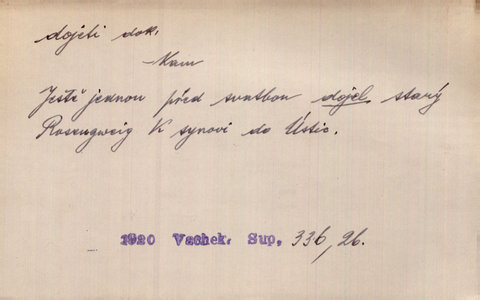 dojeti dok.
Kam
Ještě jednou před svatbou dojel starý
Rosenzweig K synovi do Ústic.
1920 Vachek. Sup, 336, 26.